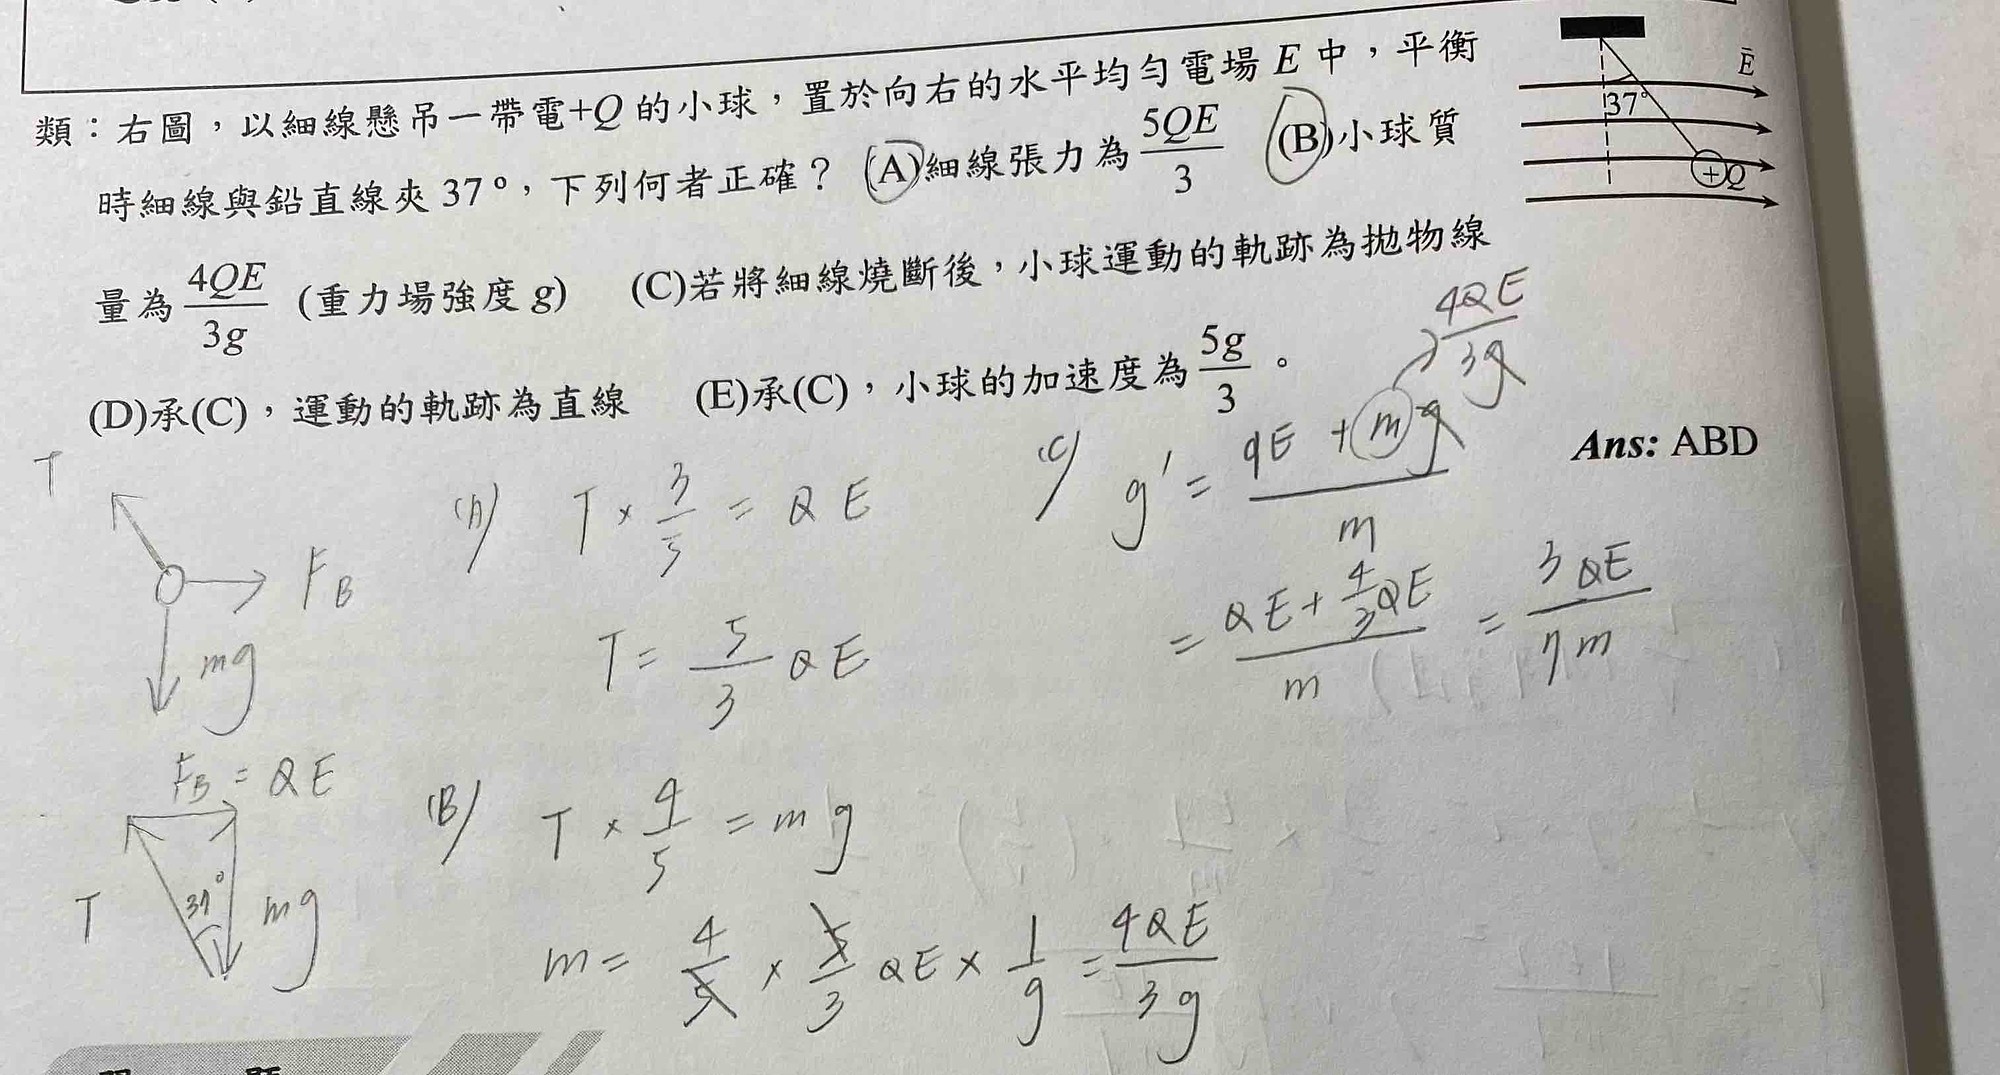 類：右圖，以細線懸吊一帶電+Q 的小球，置於向右的水平均勻電場 E 中，平衡
時細線與鉛直線夾 37°，下列何者正確？ (A)細線張力為 5QE/3 (B)小球質
量為 4QE/3g (重力場強度 g) (C)若將細線燒斷後，小球運動的軌跡為拋物線
(D)承(C)，運動的軌跡為直線 (E)承(C)，小球的加速度為 5g/3 。
Ans: ABD
E
37°
+Q
T
F_B
mg
F_B = QE
T
37°
mg
(A) T × 3/5 = QE
T = 5/3 QE
(B) T × 4/5 = mg
m = 4/5 × 5/3 QE × 1/g = 4QE/3g
(C) g' = qE + mg / m
4QE/3g
= QE + 4/3 QE / m = 3QE/7m